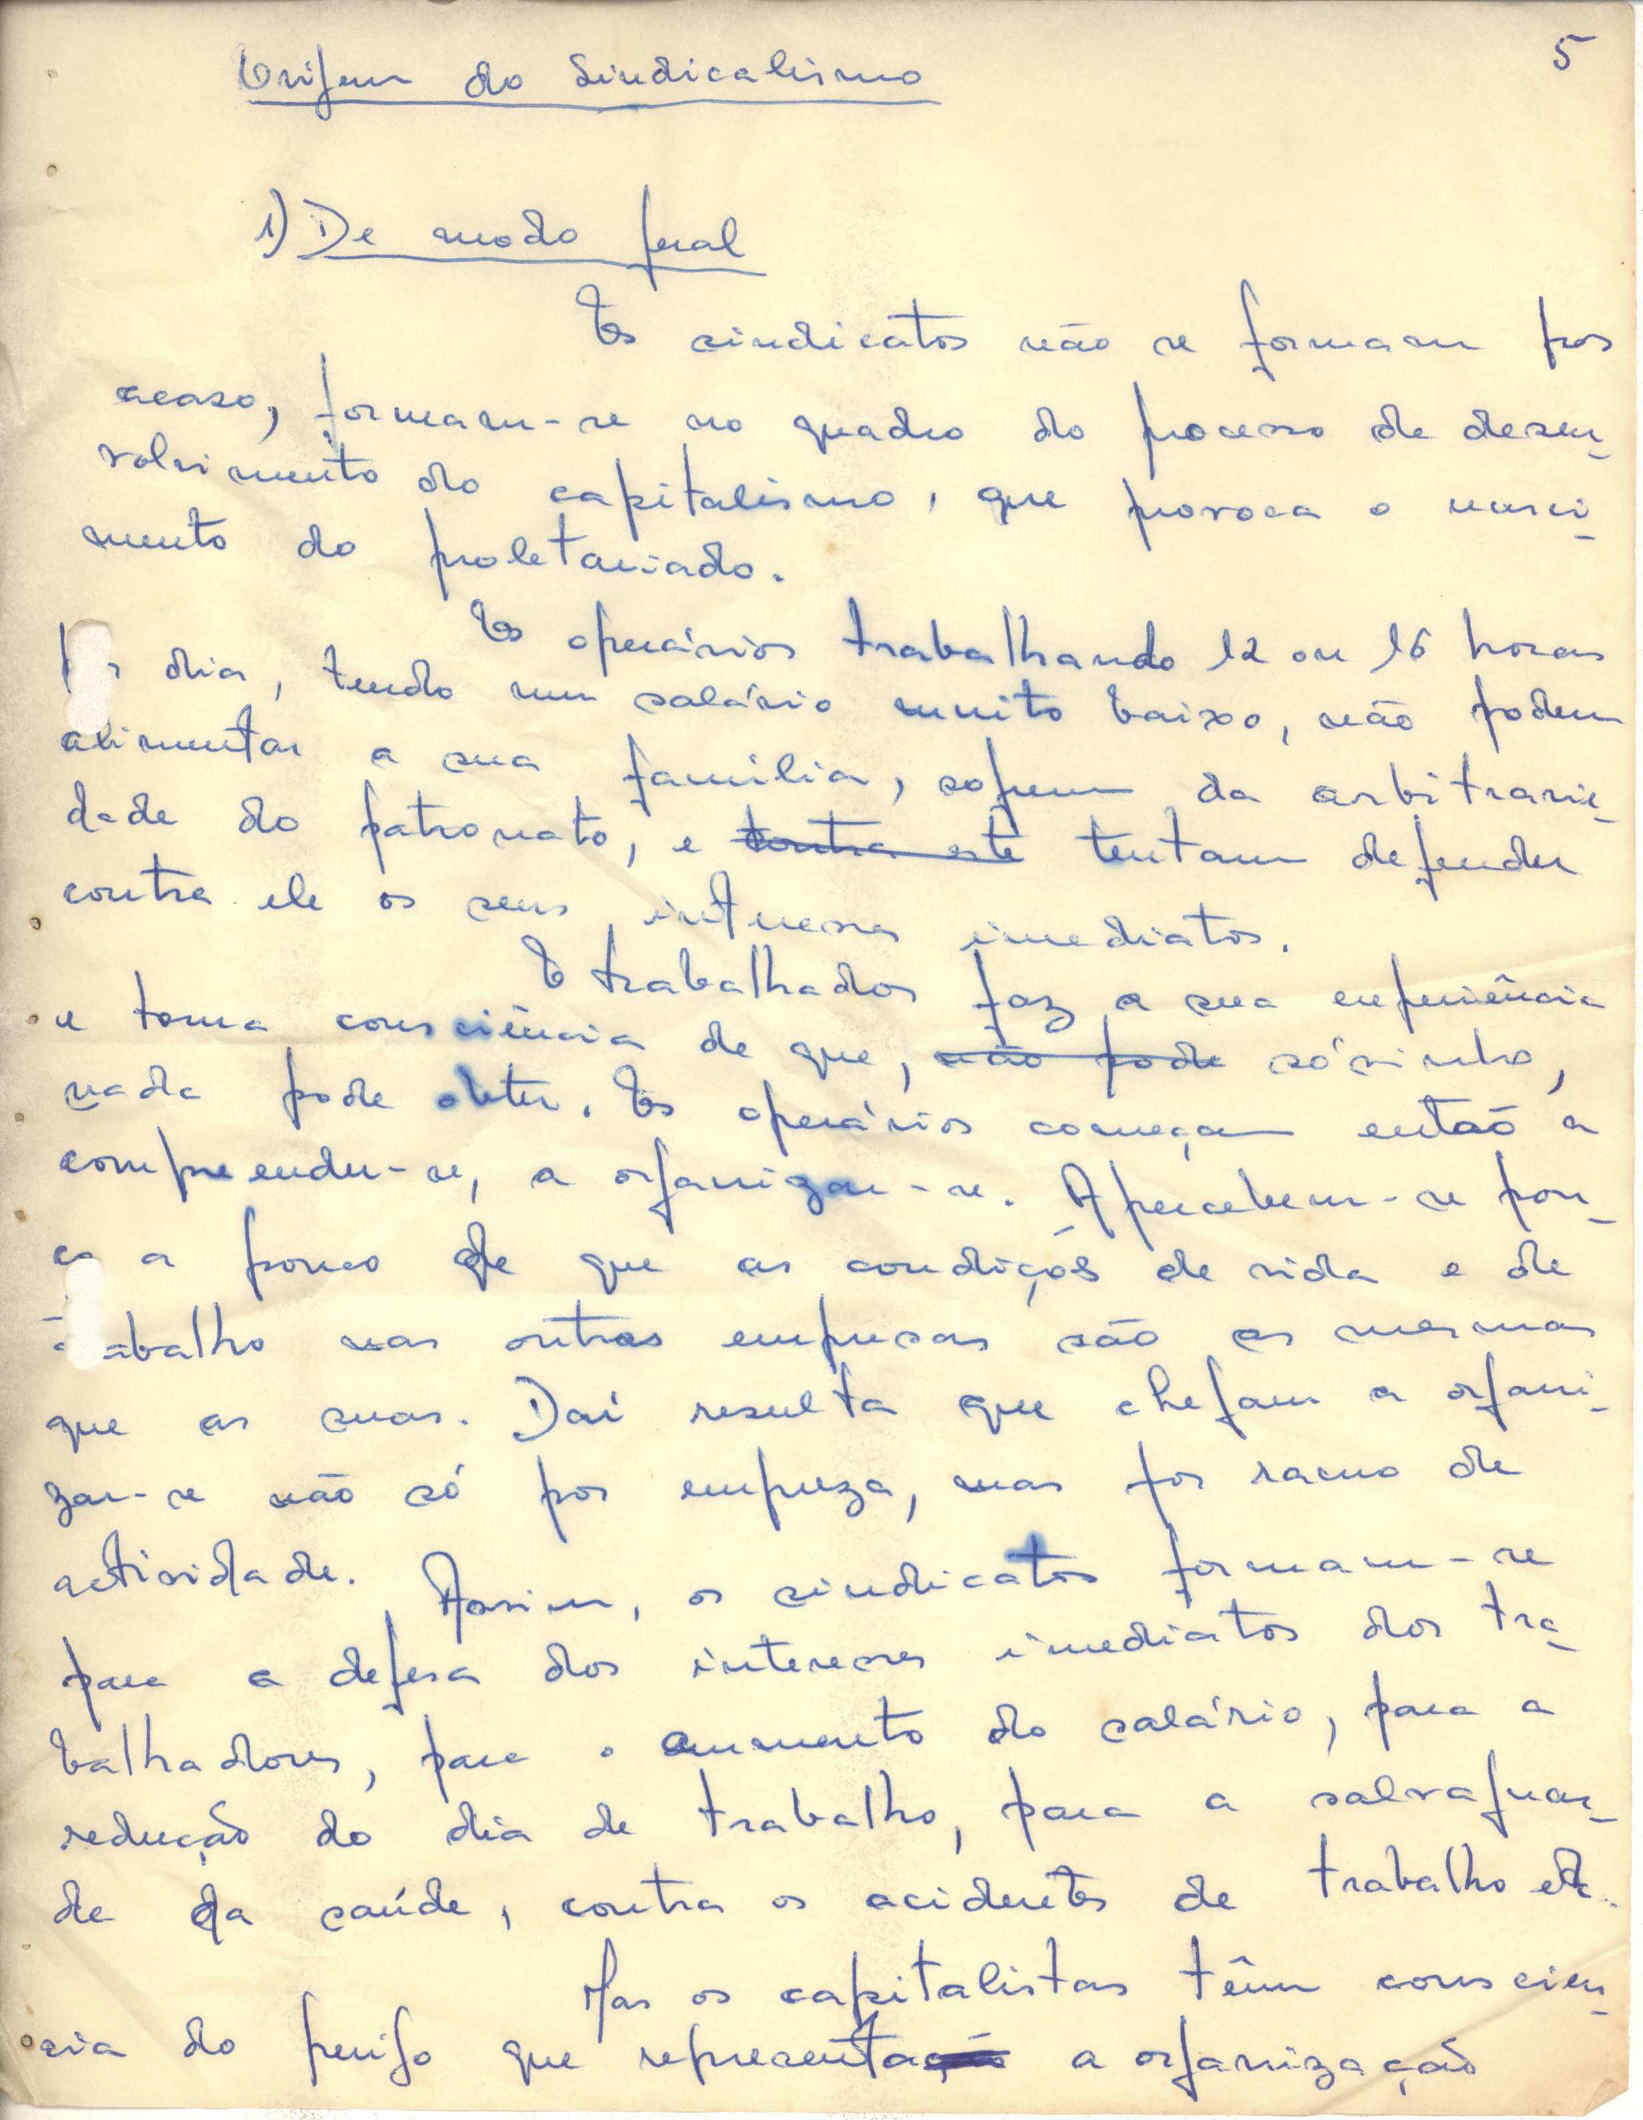 5
Origem do Sindicalismo
1) De modo geral
Os sindicatos não se formam por
acaso, formam-se no quadro do processo de desen-
volvimento do capitalismo, que provoca o nasci-
mento do proletariado.
Os operários trabalhando 12 ou 16 horas
dia, tendo um salário muito baixo, não podem
alimentar a sua família, sofrem da arbitrarie-
dade do patronato, e contra este tentam defender
contra ele os seus interesses imediatos.
O trabalhador faz a sua experiência
e toma consciência de que, não pode sózinho,
nada pode obter. Os operários começam então a
compreender-se, a organizar-se. Apercebem-se pou-
co a pouco de que as condições de vida e de
trabalho nas outras empresas são as mesmas
que as suas. Daí resulta que chegam a organi-
zar-se não só por empreza, mas por ramo de
actividade. Assim, os sindicatos formam-se
para a defesa dos interesses imediatos dos tra-
balhadores, para o aumento do salário, para a
redução do dia de trabalho, para a salvaguar-
de da saúde, contra os acidentes de trabalho etc.
Mas os capitalistas têm conscien-
cia do perigo que representa a organização